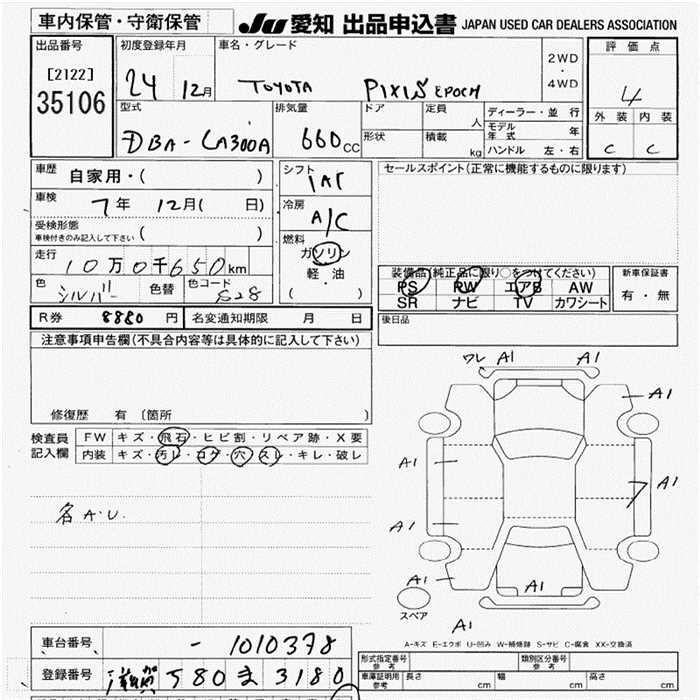 車内保管・守衛保管
JU 愛知 出品申込書 JAPAN USED CAR DEALERS ASSOCIATION
出品番号
[2122]
35106
初度登録年月
24 12月
車名・グレード
TOYOTA PIXIS EPOCH
2WD
・
4WD
評価点
4
外装 内装
C C
型式
DBA-LA300A
排気量
660CC
ドア
形状
定員
人
積載
kg
ディーラー・並行
モデル年式 年
ハンドル 左・右
車歴
自家用・( )
車検
7年 12月( 日)
受検形態
車検付きのみ記入して下さい ( )
走行
10万0千650km
色
シルバー
色替
色コード
S28
シフト
IAT
冷房
A/C
燃料
ガソリン
軽・油
( )
セールスポイント(正常に機能するものに限ります)
装備品(純正品に限り○をつけてください)
PS PW エアB AW
SR ナビ TV カワシート
新車保証書
有・無
R券 8880円
名変通知期限 月 日
後日品
注意事項申告欄(不具合内容等は具体的に記入して下さい)
修復歴 有 〔箇所 〕
検査員記入欄
FW キズ・飛石・ヒビ割・リペア跡・X要
内装 キズ・汚レ・コゲ・穴・スレ・キレ・破レ
名A.U.
ワレ A1 A1
A1
A1
A1
A1
A1
A1
スペア
A1
A-キズ E-エクボ U-凹み W-補修跡 S-サビ C-腐食 XX-交換済
車台番号
- 1010378
登録番号
滋賀 580 ま 3180
形式指定番号
参考
類別区分番号
参考
車庫証明用
参考
長さ cm
幅 cm
高さ cm